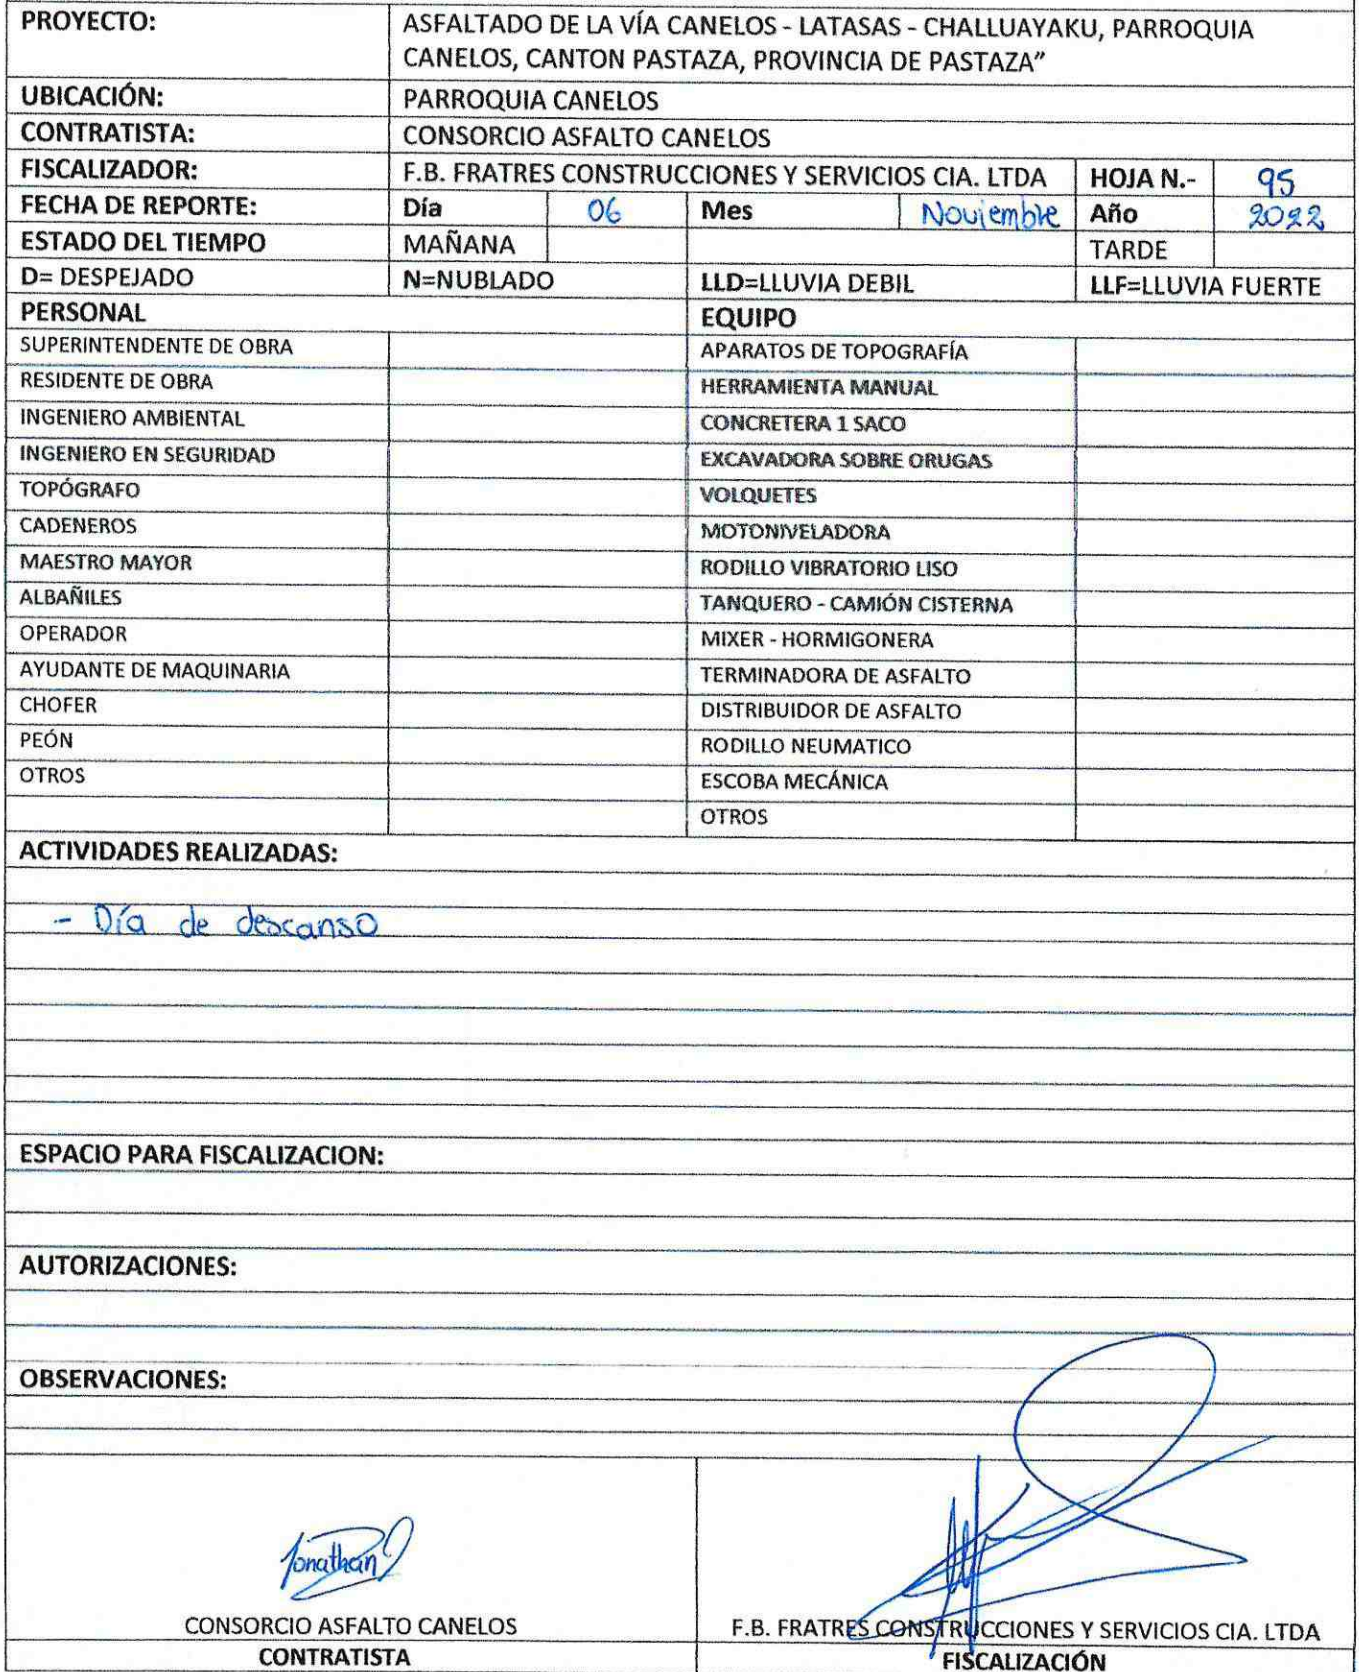 PROYECTO: ASFALTADO DE LA VÍA CANELOS - LATASAS - CHALLUAYAKU, PARROQUIA
CANELOS, CANTON PASTAZA, PROVINCIA DE PASTAZA”
UBICACIÓN: PARROQUIA CANELOS
CONTRATISTA: CONSORCIO ASFALTO CANELOS
FISCALIZADOR: F.B. FRATRES CONSTRUCCIONES Y SERVICIOS CIA. LTDA HOJA N.- 95
FECHA DE REPORTE: Día 06 Mes Noviembre Año 2022
ESTADO DEL TIEMPO MAÑANA TARDE
D= DESPEJADO N=NUBLADO LLD=LLUVIA DEBIL LLF=LLUVIA FUERTE
PERSONAL EQUIPO
SUPERINTENDENTE DE OBRA APARATOS DE TOPOGRAFÍA
RESIDENTE DE OBRA HERRAMIENTA MANUAL
INGENIERO AMBIENTAL CONCRETERA 1 SACO
INGENIERO EN SEGURIDAD EXCAVADORA SOBRE ORUGAS
TOPÓGRAFO VOLQUETES
CADENEROS MOTONIVELADORA
MAESTRO MAYOR RODILLO VIBRATORIO LISO
ALBAÑILES TANQUERO - CAMIÓN CISTERNA
OPERADOR MIXER - HORMIGONERA
AYUDANTE DE MAQUINARIA TERMINADORA DE ASFALTO
CHOFER DISTRIBUIDOR DE ASFALTO
PEÓN RODILLO NEUMATICO
OTROS ESCOBA MECÁNICA
OTROS
ACTIVIDADES REALIZADAS:
- Día de descanso
ESPACIO PARA FISCALIZACION:
AUTORIZACIONES:
OBSERVACIONES:
Jonathan
CONSORCIO ASFALTO CANELOS F.B. FRATRES CONSTRUCCIONES Y SERVICIOS CIA. LTDA
CONTRATISTA FISCALIZACIÓN